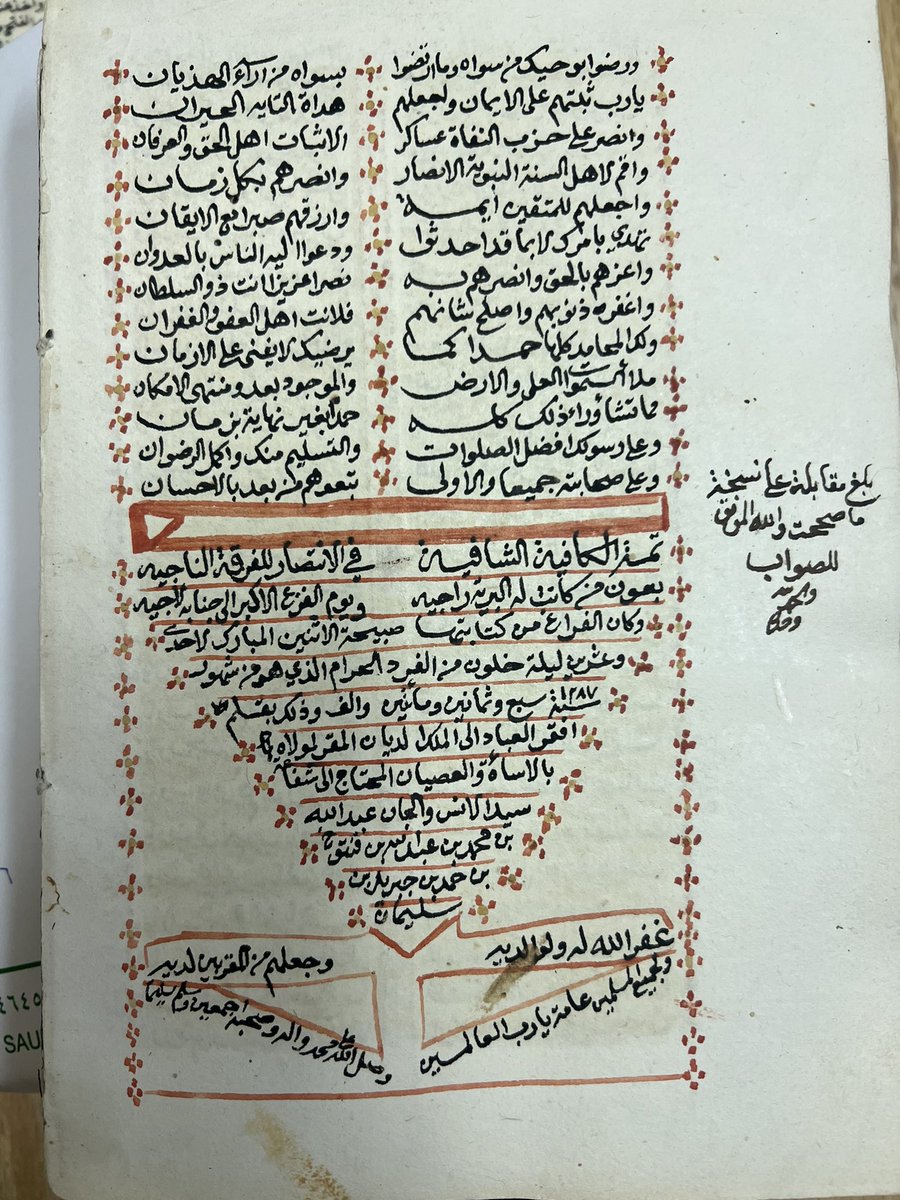 ورضوا بو حيك من سواه وما ارتضوا بسواه من آراء الهذيان
يارب ثبتهم على الايمان واجعلهم هداة التايه الحيران
وانصر على حزب النفاة عساكر الاثبات اهل الحق والعرفان
واقم لاهل السنة النبوية الانصار وانصرهم بكل زمان
واجعلهم للمتقين ايمــة وارزقهم صبرا مع الايقان
تهدي بامرك لا بما قد احدثوا ودعوا اليه الناس بالعدوان
واعزهم بالحق وانصرهم به نصرا عزيزا انت ذو السلطان
واغفر ذنوبهم واصلح شانهم فلانت اهل العفو والغفران
ولك المحامد كلها حمدا كما يرضيك لا يفنى على الازمان
ملأ السموات العلى والارض والموجود بعد ومنتهى الامكان
مما تشأ وراء ذلك كله حمدا بغير نهاية بزمان
وعلى رسولك افضل الصلوات والتسليم منك واكمل الرضوان
وعلى صحابته جميعا والاولى تبعوهم من بعد بالاحسان
بلغ مقابلة على نسخة
ما صححت والله الموفق
للصواب
والحمد لله
وحده
تمت الكافية الشافية في الانتصار للفرقة الناجيه
بعون من كانت له البرية راجيه ويوم الفزع الاكبر الى جنابه لاجيه
وكان الفراغ من كتابتها صبيحة الاثنين المبارك لاحدى
وعشرين ليلة خلون من الفرد الحرام الذي هو من شهور
سنة ١٢٨٧ سبع وثمانين ومأتين والف وذلك بقلم
افقر العباد الى الملك الديان المقر لمولاه
بالاسأة والعصيان المحتاج الى شفاعة
سيد الانس والجان عبد الله
بن محمد بن عبد الله بن فنتوخ
بن حمد بن جبريل بن
سليمان
غفر الله له ولوالديه وجعلهم من المقربين لديه
ولجميع المسلمين عامة يارب العالمين
وصلى الله على محمد واله وصحبه اجمعين وسلم تسليما
٤٦٤٥
SAU